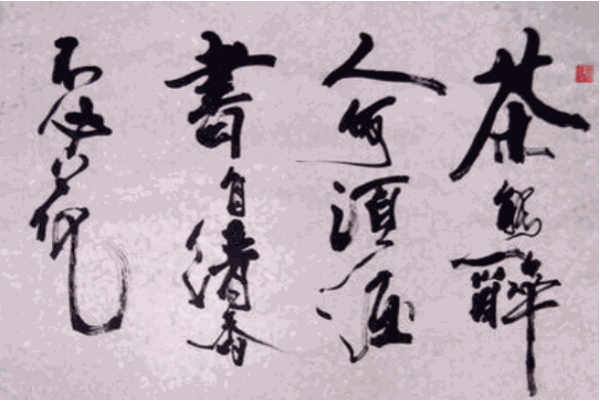 茶能醉
人何須酒
書自清香
不必花